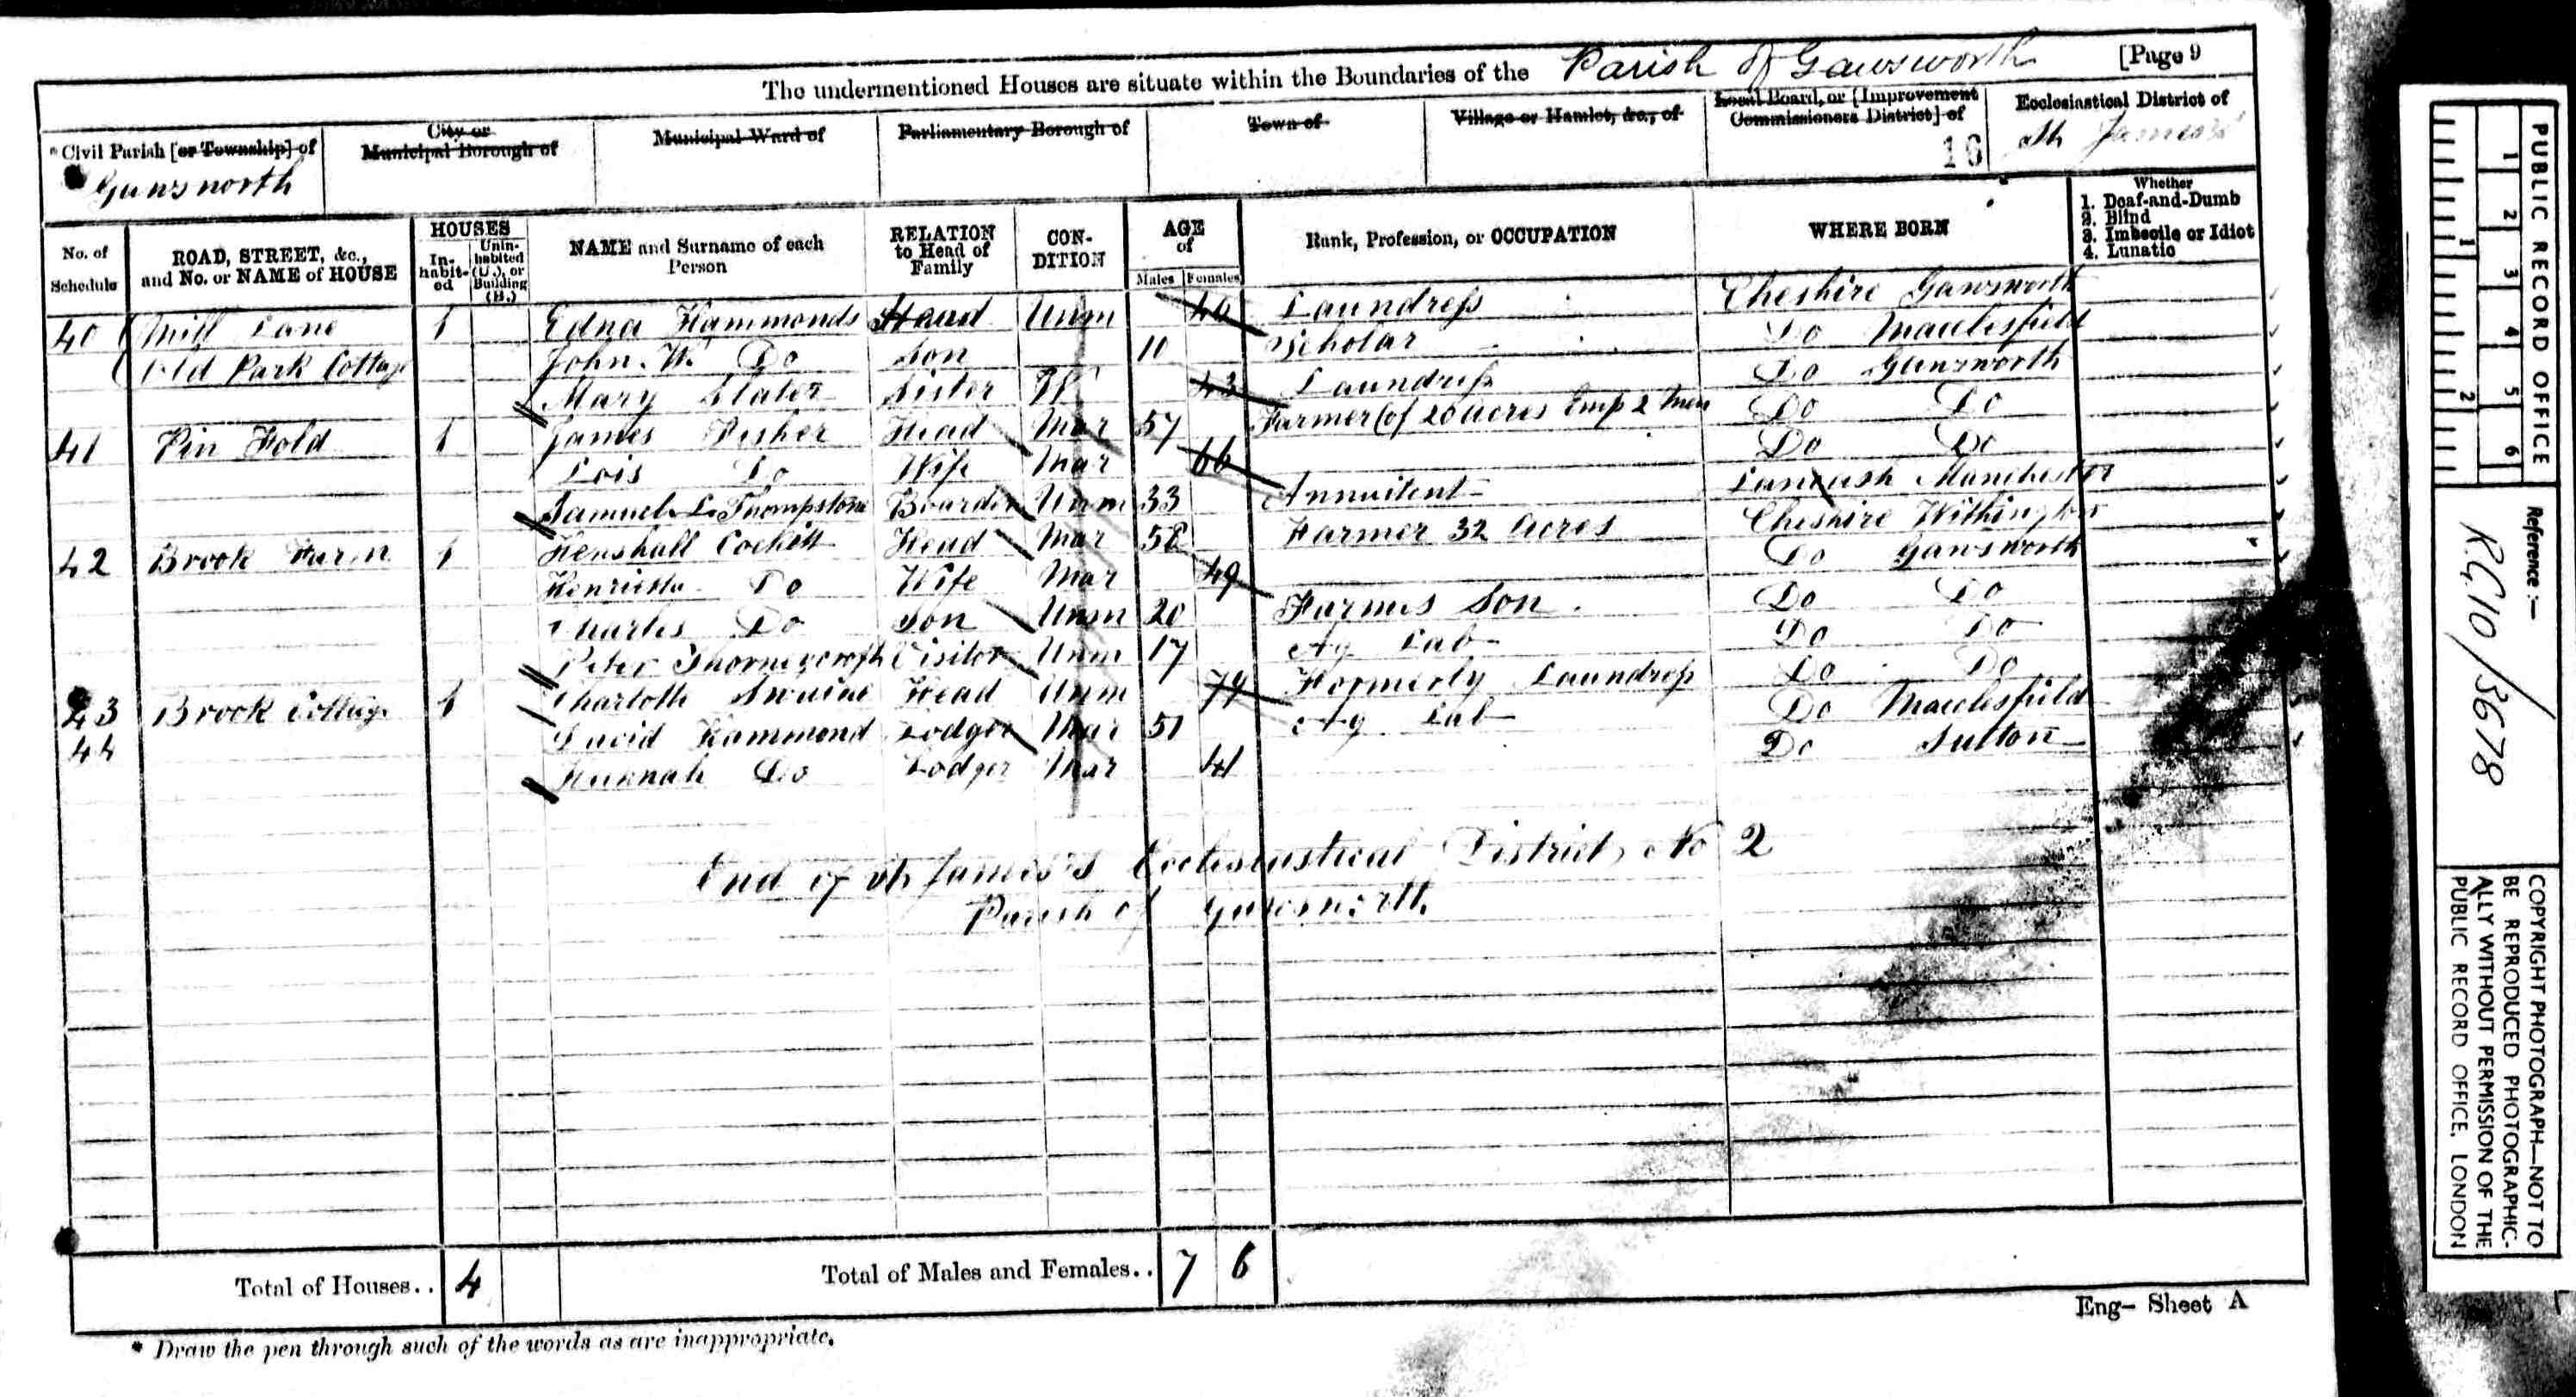 The undermentioned Houses are situate within the Boundaries of the Parish of Gawsworth [Page 9
* Civil Parish [or Township] of Gawsworth
City or Municipal Borough of
Municipal Ward of
Parliamentary Borough of
Town of
Village or Hamlet, &c., of
Local Board, or [Improvement Commissioners District] of
16
Ecclesiastical District of St James's
No. of Schedule
ROAD, STREET, &c., and No. or NAME of HOUSE
HOUSES
In-habit-ed
Unin-habited (U.), or Building (B.)
NAME and Surname of each Person
RELATION to Head of Family
CON-DITION
AGE of
Males Females
Rank, Profession, or OCCUPATION
WHERE BORN
Whether
1. Deaf-and-Dumb
2. Blind
3. Imbecile or Idiot
4. Lunatic
40 Mill Lane 1 Edna Hammonds Head Unm 46 Laundress Cheshire Gawsworth
Old Park Cottage John. W. Do Son 10 Scholar Do Macclesfield
Mary Slater Sister W 43 Laundress Do Gawsworth
41 Pin Fold 1 James Fisher Head Mar 57 Farmer (of 20 acres Emp 2 men Do Do
Lois Do Wife Mar 66 Do Do
Samuel L Thompstone Boarder Unm 33 Annuitent Lancash Manchester
42 Brook Farm 1 Henshall Cockitt Head Mar 58 Farmer 32 Acres Cheshire Withington
Henrietta Do Wife Mar 49 Do Gawsworth
Charles Do Son Unm 20 Farmers Son. Do Do
Peter Thorneycroft Visitor Unm 17 Ag Lab Do Do
43 Brook Cottage 1 Charlotte Swaine Head Unm 74 Formerly Laundress Do Do
44 David Hammond Lodger Mar 51 Ag Lab Do Macclesfield
Hannah Do Lodger Mar 41 Do Sutton
End of St James's Ecclesiastical District No 2
Parish of Gawsworth.
Total of Houses.. 4
Total of Males and Females.. 7 6
Eng- Sheet A
* Draw the pen through such of the words as are inappropriate.
PUBLIC RECORD OFFICE
1 2 3 4 5 6
1 2
Reference :-
RG10/3678
COPYRIGHT PHOTOGRAPH—NOT TO
BE REPRODUCED PHOTOGRAPHIC-
ALLY WITHOUT PERMISSION OF THE
PUBLIC RECORD OFFICE, LONDON